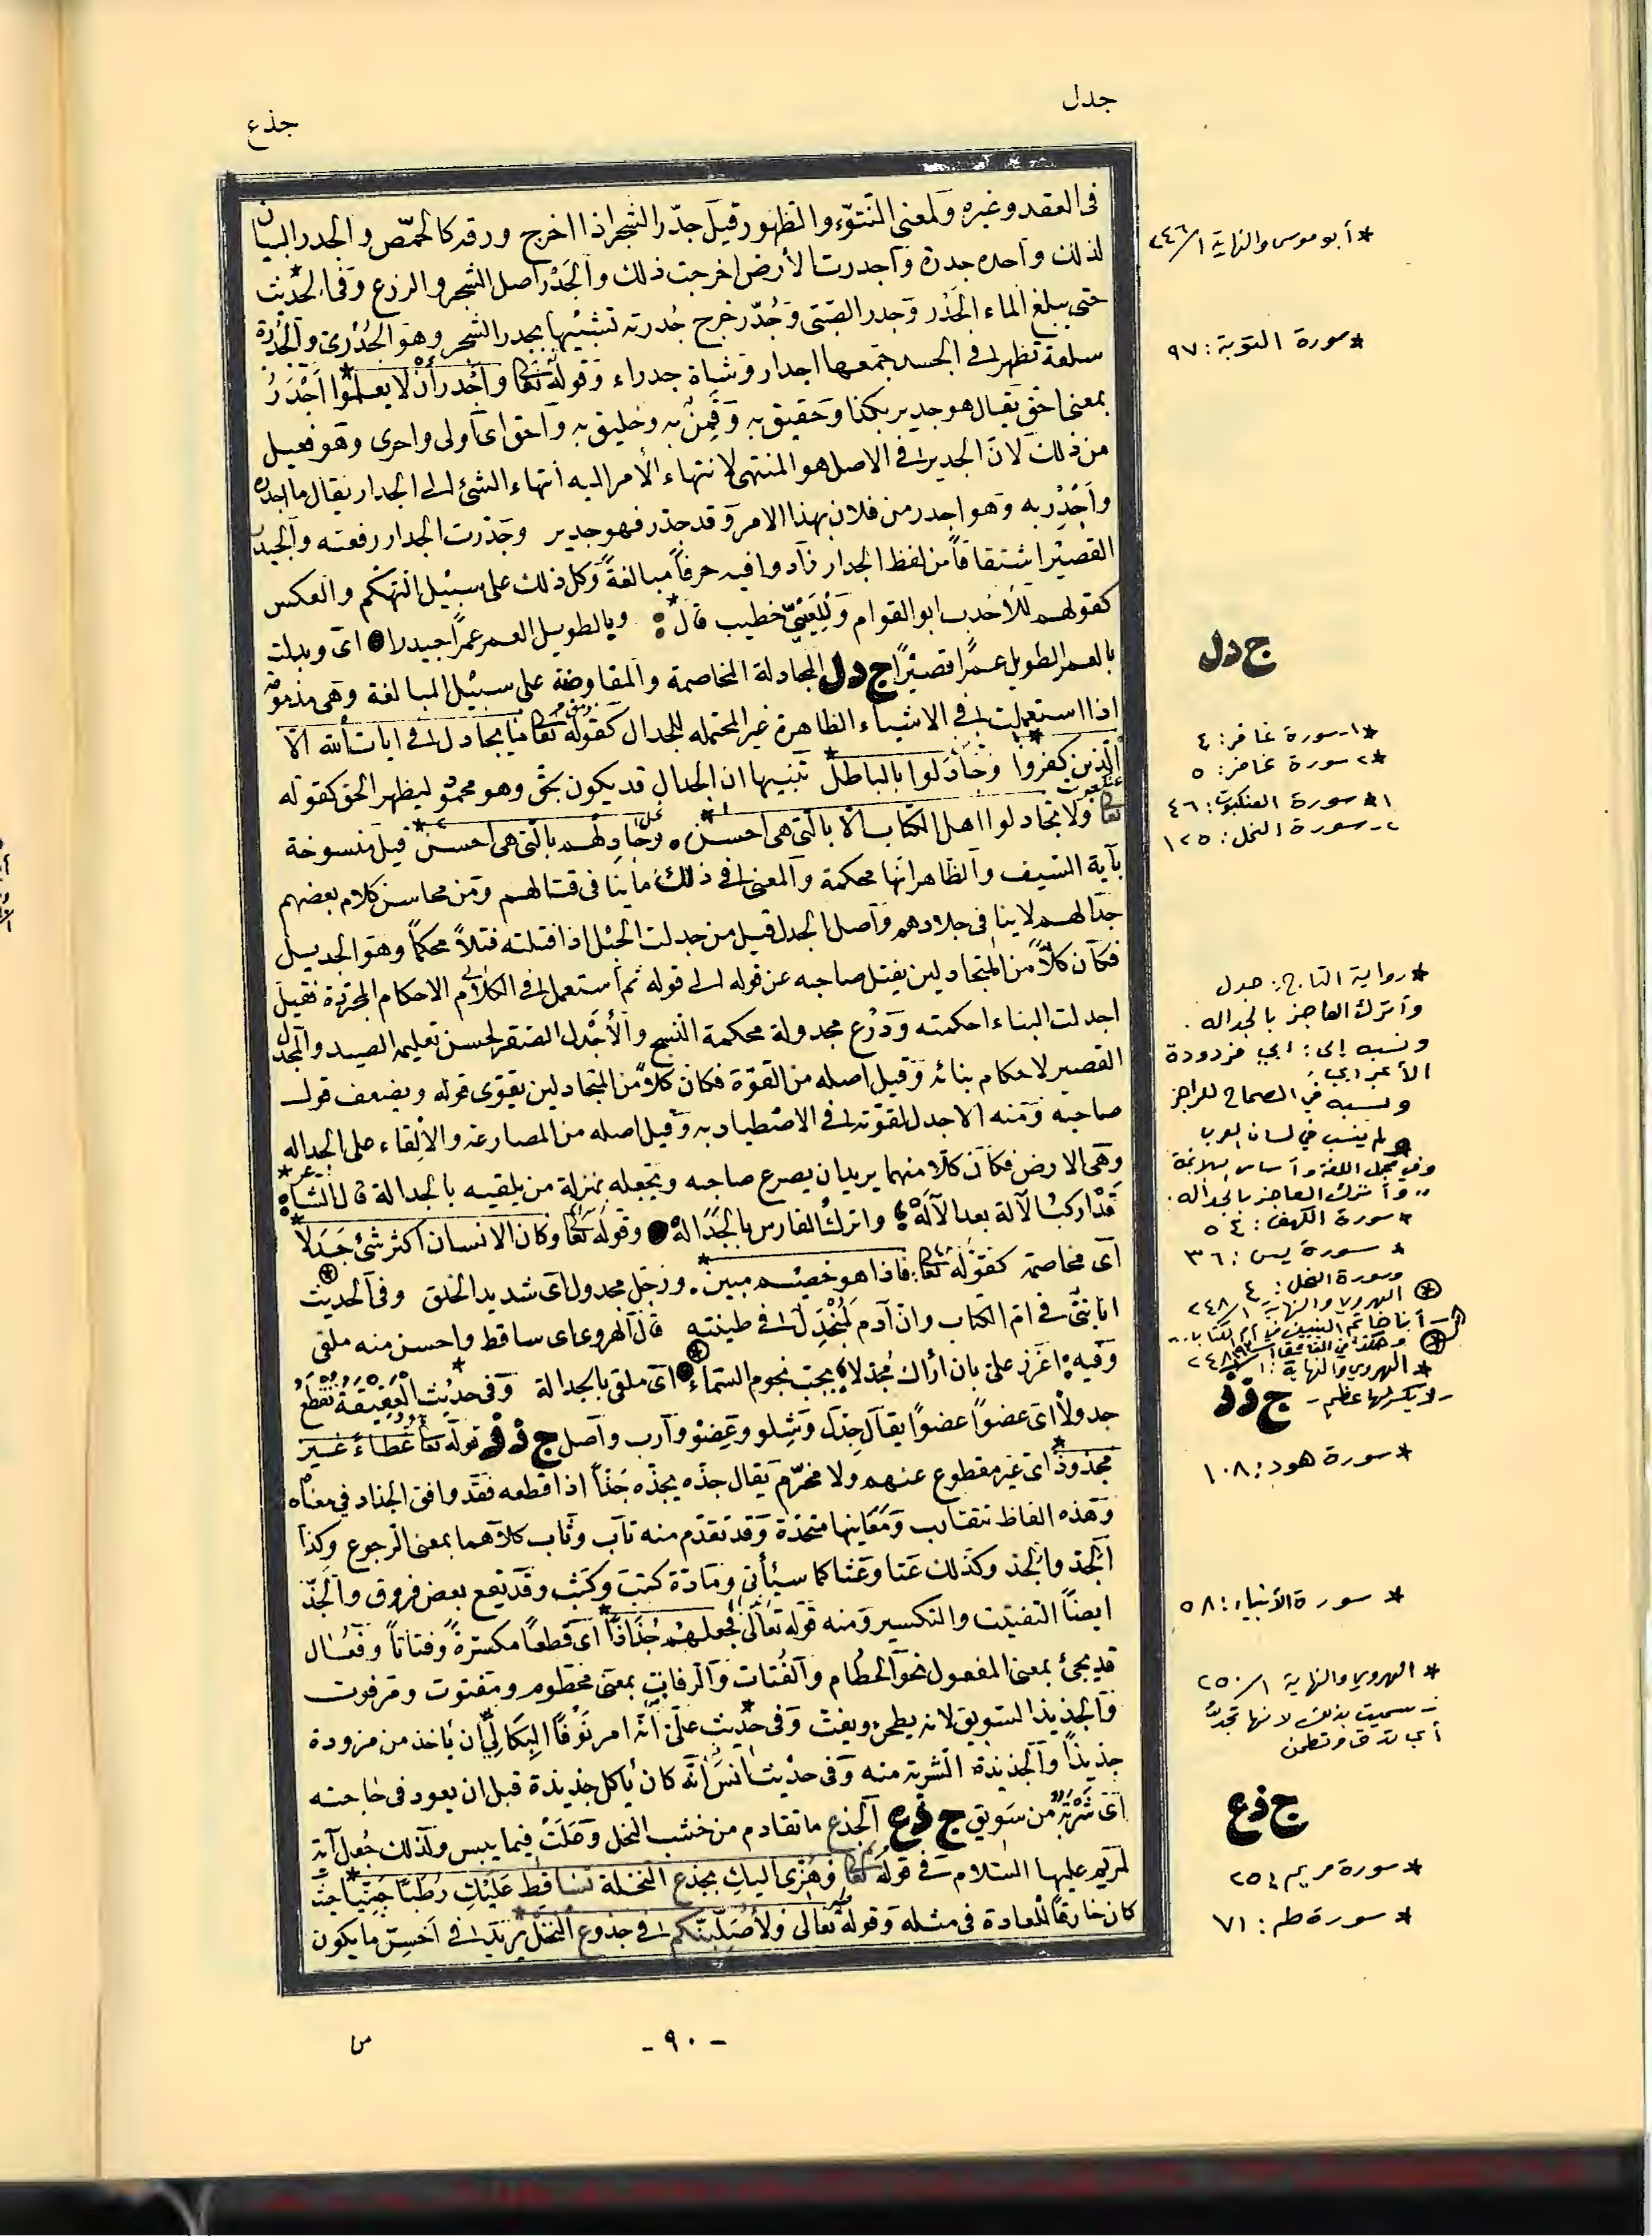 جدل
جذع
فى العقد وغيره ولمعنى النتوّء والظهور قيل جدّر الشجر اذا اخرج ورقه كالحمّص والجدر البيان
لذلك واحده جدرة وأجدرت الأرض اخرجت ذلك والجَدْر اصل الشجر والزرع وفى الحديث*
حتى يبلغ الماء الجَدْر وجدر الصّبىّ وجُدّر خرج جُدَريّه تشبيها بجدر الشجر وهو الجُدَرىّ والجُدَرة
سلعة تظهر فى الجسد جمعها اجدار وشاة جدراء وقوله تعالى وأَجْدَرُ أَنْ لا يعلموا* اَجْدَرُ
بمعنى احق يقال هو جدير بكذا وحقيق به وقَمِنٌ به وخليق به واحق اى اولى واحرى وهو فعيل
من ذلك لانّ الجدير فى الاصل هو المنتهى لانتهاء الأمر اليه انتهاء الشئ الى الجدار يقال ما اجدره
واَجْدِرْ به وهو اجدر من فلان بهذا الامر وقد جدر فهو جدير وجدّرت الجدار رفعته والجيدر
القصير اشتقاقاً من لفظ الجدار زادوا فيه حرفاً مبالغةً وكل ذلك على سبيل التهكّم والعكس
كقولهم للأحدب ابو القوام وللعَيىّ خطيب قال* : وبالطويل العمر عمراً جيدرا • اى وبدلت
بالعمر الطويل عمرًا قصيرًا ج دل المجادلة المخاصمة والمقاوضة على سبيل المبالغة وهى مذمومة
اذا استعملت فى الاشياء الظاهرة غير المحتمله للجدال كقوله تعالى ما يجادل فى ايات الله الاّ
الّذين كفروا* وجَادَلوا بالباطل* تنبيها ان الجدال قد يكون بحق وهو محمود ليظهر الحق كقوله
تعالى ولا تجادلوا اهل الكتاب الاّ بالّتى هى احسن* . وجَادِلْهم بالّتى هى احسن* قيل منسوخة
بآية السّيف والظاهر انّها محكمة والمعنى فى ذلك ما ينافى قتالهم ومن محاسن كلام بعضهم
جدالهم لا ينافى جلادهم واصل الجدل قيل من جدلت الحبل اذا فتلته فتلاً محكماً وهو الجديل
فكأن كلاًّ من المتجادلين يفتل صاحبه عن قوله الى قوله ثم استعمل فى الكلام الاحكام المجرّدة فقيل
اجدلت البناء احكمته ودرع مجدولة محكمة النّسج والأجدل الصّقر لحسن تعليمه الصيد والمجدل
القصير لاحكام بنائه وقيل اصله من القوّة فكان كلاًّ من المتجادلين يقوّى قوله ويضعف قول
صاحبه ومنه الاجدل لقوّته فى الاصطياد به وقيل اصله من المصارعة والالقاء على الجداله
وهى الارض فكأن كلاًّ منهما يريد ان يصرع صاحبه ويجعله بمنزلة من يلقيه بالجدالة قال الشاعر*
قَدْ اركبُ الآلة بعد الآلَهْ ؛ واتركُ الفارس بالجَدَالهْ • وقوله تعالى وكان الانسان اكثر شئ جَدَلا*
اى مخاصمة كقوله تعالى فاذا هو خصيم مبين* . ورجل مجدول اى شديد الخلق وفى الحديث
انا نبىّ فى امّ الكتاب وانّ آدم لَمُنْجَدِلٌ فى طينته قال الهروى اى ساقط واحسن منه ملقى
وفيه اعزز علىّ بان اراك مُجدّلا ؛ بحب نجوم السّماء • اى ملقى بالجدالة وفى حديث* الْعَقِيقَة تُقْطَعُ
جدولاً اى عضوًا عضوًا يقال جِدْل وشِلو وعضو وآرب واصل ج ذ ذ قوله تعالى عَطاءً غَيرَ
مجذوذ* اى غير مقطوع عنهم ولا مخرّم يقال جذّه يجذّه جَذًّا اذا قطعه فقد وافق الجداد فى معناه
وهذه الفاظ تتقارب ومَعَانيها متّحدة وقد تقدّم منه تاب وثاب كلاهما بمعنى الرّجوع وكذا
الجدّ والجذّ وكذلك عَتا وعَثا كما سيأتى ومادّة كتب وكثب وقد يقع بعض فروق والجذّ
ايضاً التفتيت والتكسير ومنه قوله تعالى فجعلهُمْ جُذَاذًا* اى قطعًا مكسّرةً وفتاتاً وفُعَال
قد يجئ بمعنى المفعول نحو الحُطَام والفُتات والرّفات بمعنى محطوم ومفتوت ومرفوت
والجذيذ السّويق لانه يطحن ويفتّ وفى حديث* علىّ انّه امر نَوْفًا البِكَالىّ ان ياخذ من مزوده
جذيذاً والجذيذة الشّربة منه وفى حديث انس انّه كان يأكل جذيذة قبل ان يعود فى حاجته
اى شَرْبَةً من سَويق ج ذع الجذع ما تقادم من خشب النخل وصَلُبَ فيما يبس ولذلك جُعل آية
لمريم عليها السّلام فى قوله تعالى وهُزّى اليكِ بجذع النّخلة تُساقِط عَلَيْكِ رُطَبًا جَنِيًّا* حيث
كان خارقاً للعادة فى مثله وقوله تعالى ولأُصَلِّبَنّكم فى جذوع النّخل* يريد فى اخسّ ما يكون
* أبو موسى والنهاية ١/٢٤٦
* سورة التوبة: ٩٧
ج دل
١* سورة غافر: ٤
٢* سورة غافر: ٥
١* سورة العنكبوت: ٤٦
٢- سورة النحل: ١٢٥
* رواية التاج: جدل
وأترك العاجز بالجداله .
ونسبه إلى: أبي قردودة
الأعرابي
ونسبه في الصحاح للراجز
ولم ينسب في لسان العرب
وفي مجمل اللغة وأساس البلاغة
،، وأترك العاجز بالجداله.
* سورة الكهف: ٥٤
* سورة يس: ٣٦
وسورة النحل: ٤
الهروي والنهاية ١/٢٤٨
أنا خاتم النبيين في أم الكتاب..
* الهروي والنهاية: ١/٢٤٨
- لا يكسر لها عظم - ج ذ ذ
* سورة هود: ١٠٨
* سورة الأنبياء: ٥٨
* الهروي والنهاية ١/٢٥٠
- سميت بذلك لأنها تجذّ
أي تدق وتطحن
ج ذع
* سورة مريم: ٢٥
* سورة طه: ٧١
- ٩٠ -
من